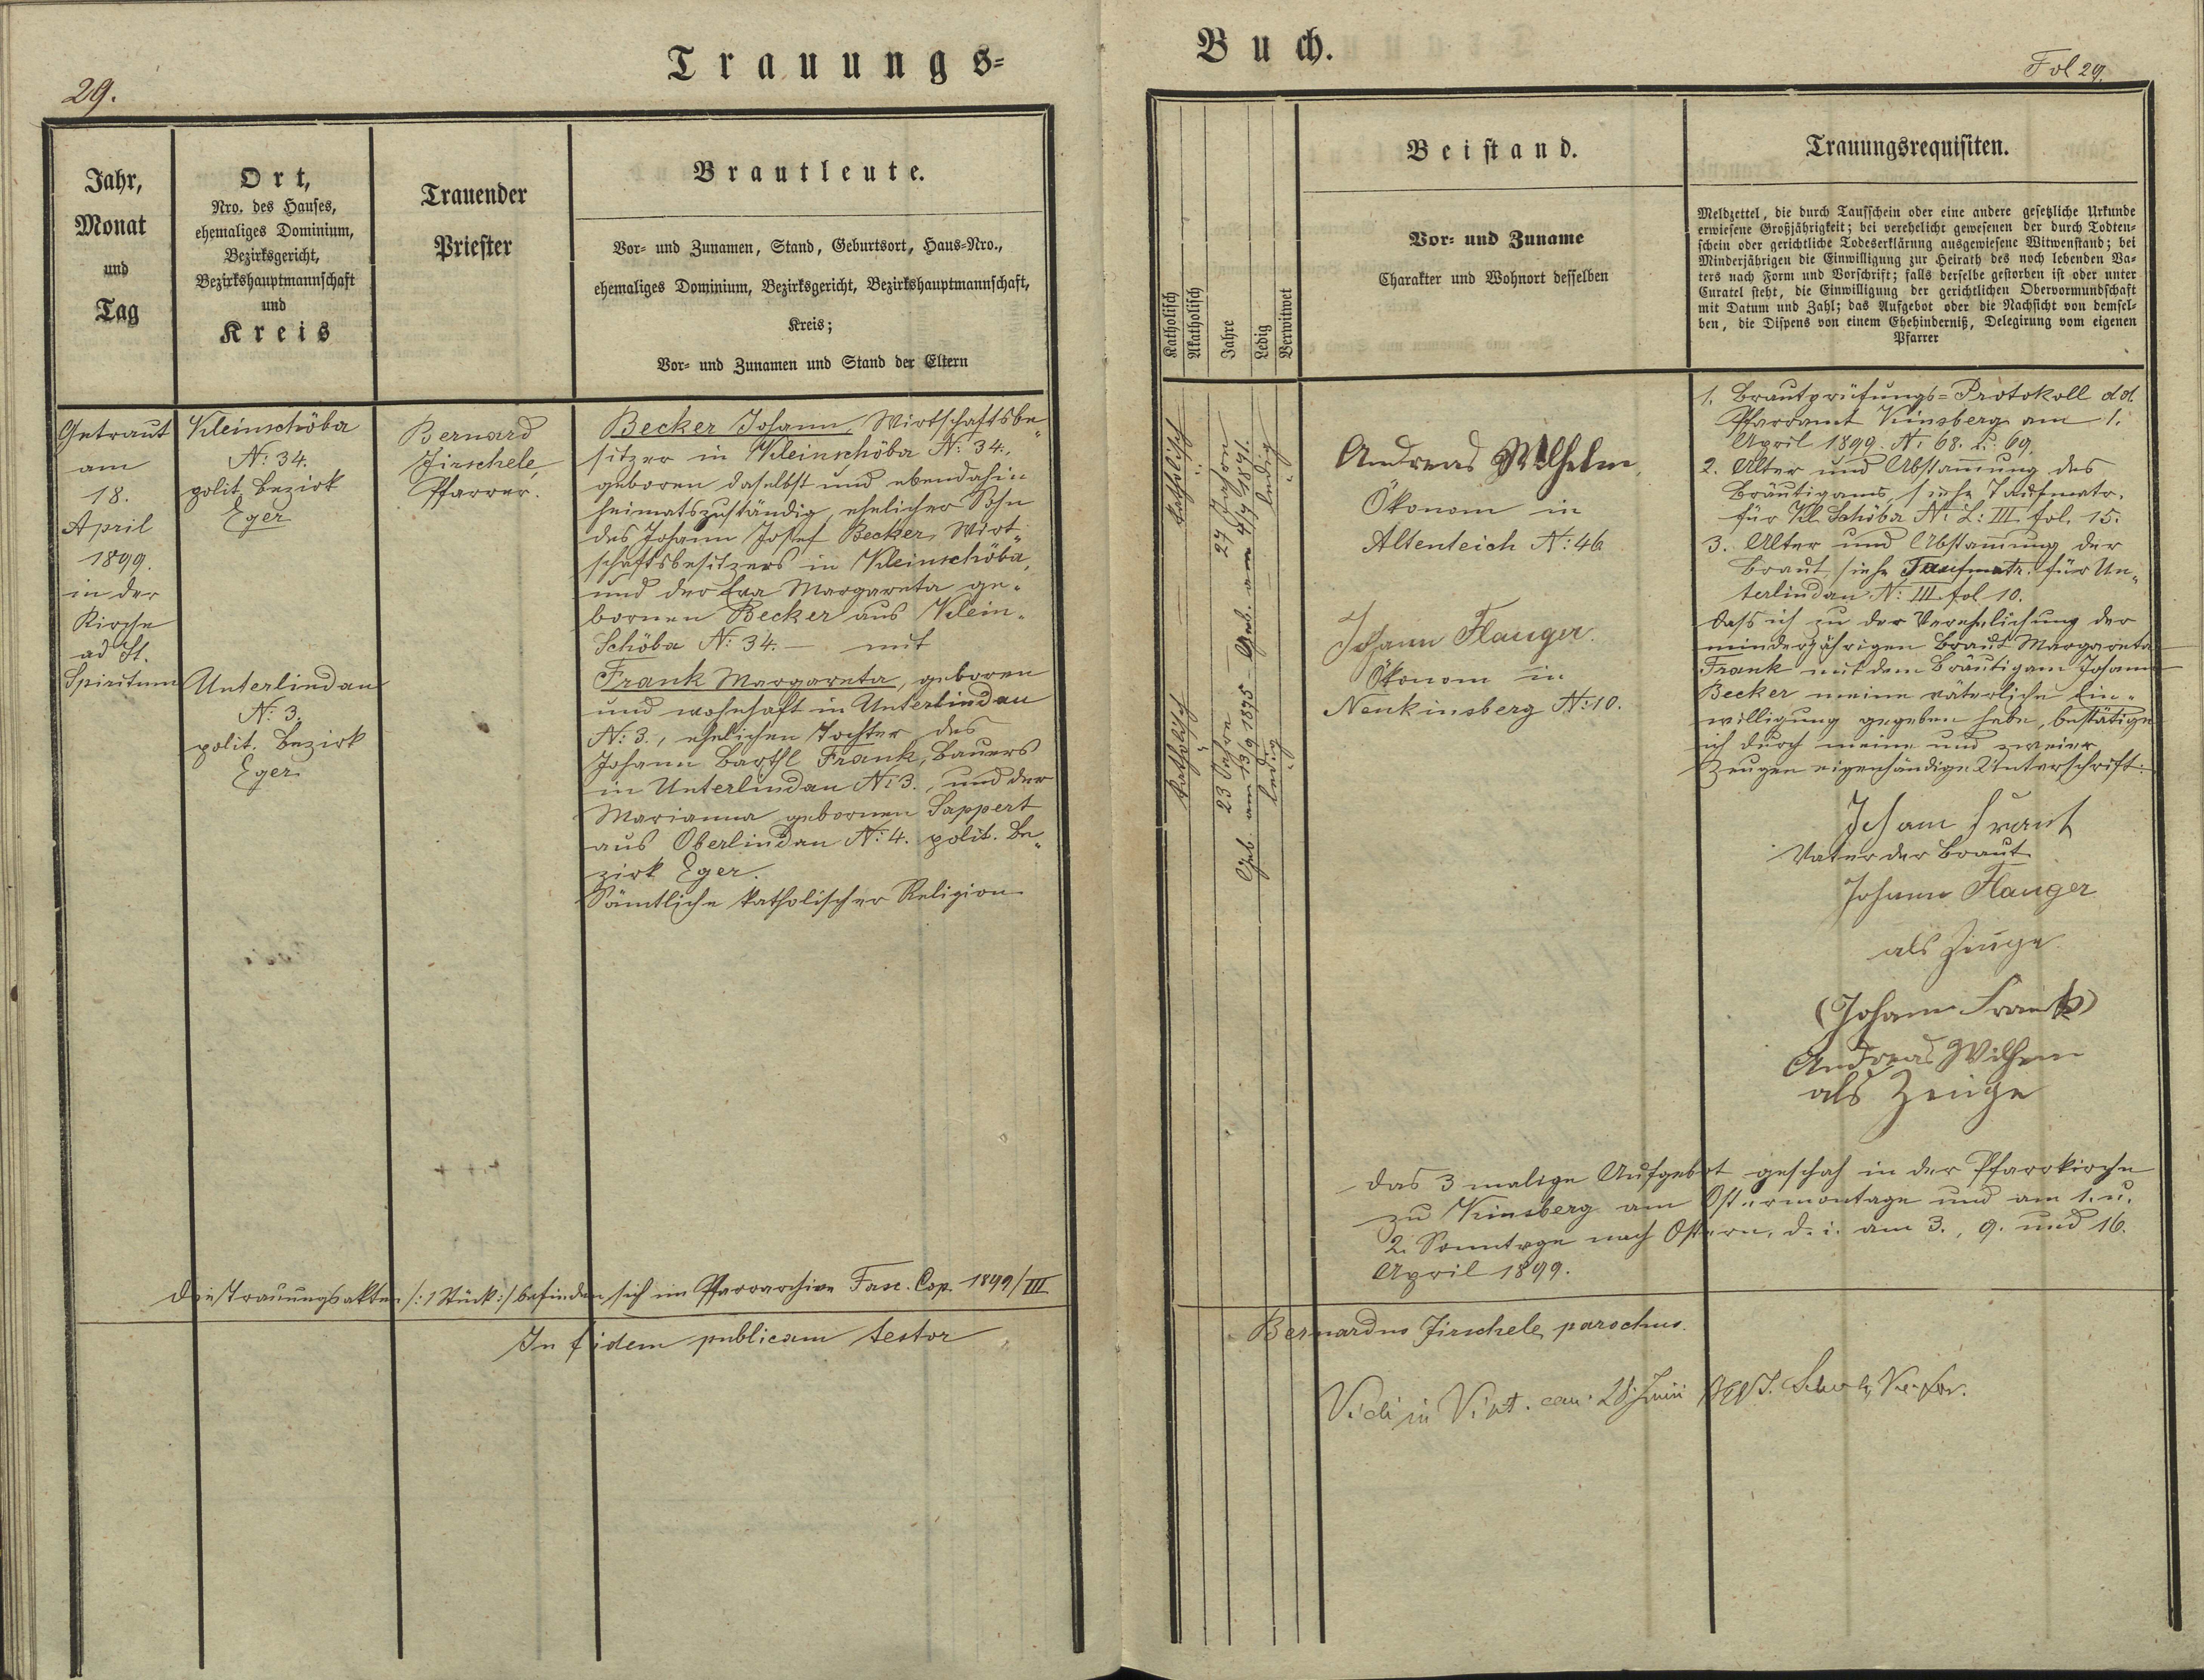 Trauungs=
29.
Jahr,
Monat
und
Tag
Ort,
Nro. des Hauses,
ehemaliges Dominium,
Bezirksgericht,
Bezirkshauptmannschaft
und
Kreis
Trauender
Priester
Brautleute.
Vor= und Zunamen, Stand, Geburtsort, Haus=Nro.,
ehemaliges Dominium, Bezirksgericht, Bezirkshauptmannschaft,
Kreis;
Vor= und Zunamen und Stand der Eltern
Getraut
am
18.
April
1899.
in der
Kirche
ad St.
Spiritum
Kleinschöba
N: 34.
polit. Bezirk
Eger
Unterlindau
N: 3.
polit. Bezirk
Eger
Bernard
Jirschele,
Pfarrer.
Becker Johann, Wirtschaftsbe„
sitzer in Kleinschöba N: 34.,
geboren daselbst und ebendahin
heimatszuständig, ehelicher Sohn
des Johann Josef Becker, Wirt„
schaftsbesitzers in Kleinschöba,
und der Eva Margareta ge„
bornen Becker aus Klein„
Schöba N: 34. — mit
Frank Margareta, geboren
und wohnhaft in Unterlindau
N: 3., ehelichen Tochter des
Johann Barthl Frank, Bauers
in Unterlindau N: 3., und der
Marianna gebornen Sappert
aus Oberlindau N: 4. polit. Be„
zirk Eger.
Sämtliche katholischer Religion
Die Trauungsakten /: 1 Stück :/ befinden sich im Pfarrarchive Fasc. Cop. 1899/III
In fidem publicam testor
Buch.
Fol 29.
Katholisch
Akatholisch
Jahre
Ledig
Verwitwet
Beistand.
Vor= und Zuname
Charakter und Wohnort desselben
Trauungsrequisiten.
Meldzettel, die durch Taufschein oder eine andere gesetzliche Urkunde
erwiesene Großjährigkeit; bei verehelicht gewesenen der durch Todten=
schein oder gerichtliche Todeserklärung ausgewiesene Witwenstand; bei
Minderjährigen die Einwilligung zur Heirath des noch lebenden Va=
ters nach Form und Vorschrift; falls derselbe gestorben ist oder unter
Curatel steht, die Einwilligung der gerichtlichen Obervormundschaft
mit Datum und Zahl; das Aufgebot oder die Nachsicht von demsel=
ben, die Dispens von einem Ehehinderniß, Delegirung vom eigenen
Pfarrer
katholisch
27 Jahre
Geb. am 4/9 1871.
ledig
katholisch
23 Jahre
Geb. am 13/9 1875
ledig
Andreas Wilhelm,
Ökonom in
Altenteich N: 46
Johann Flauger
Ökonom in
Neukinsberg N: 10.
1. Brautprüfungs=Protokoll dd.
Pfarramt Kinsberg am 1.
April 1899. N: 68. u. 69.
2. Alter und Abstamung des
Bräutigams, siehe Taufmatr.
für Kl. Schöba N: L: III. fol. 15.
3. Alter und Abstamung der
Braut, siehe Taufmatr. für Un„
terlindau N: III. fol 10.
Dass ich zu der Verehelichung der
minderjährigen Braut Margareta
Frank mit dem Bräutigam Johann
Becker meine väterliche Ein„
willigung gegeben habe, bestätige
ich durch meine und zweier
Zeugen eigenhändige Unterschrift:
Johann Frank
Vater der Braut
Johann Flauger
als Zeuge
(Johann Frank)
Andreas Wilhem
als Zeuge
Das 3 malige Aufgebot geschah in der Pfarrkirche
zu Kinsberg am Ostermontage und am 1. u.
2. Sonntage nach Ostern, d. i. am 3., 9. und 16.
April 1899.
Bernardus Jirschele, parochus.
Vidi in Visit. can. 28. Junii